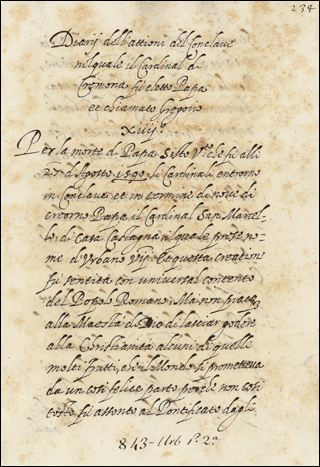 234
Diarij dell'attioni del Conclave
nel quale il Cardinal di
Cremona fù eletto Papa
et chiamato Gregorio
XIIIJ.º
Per la morte di Papa Sisto V.to che fù alli
d'Agosto 1590 li Cardinali entrorno
in Conclave, et in termine di nove dì
creorno Papa il Cardinal San Marcel-
lo di Casa Castagna il quale prese no-
me d'Urbano VIJ. et questa creatione
fù sentita con universal contento
del Popolo Romano, Ma non piacq
alla Maestà di Dio di lasciar godere
alla Christianità alcuni di quelli
molti frutti, che il Mondo si prometteva
da un così felice parto perche non così
tosto fù assonto al Pontificato dagli
843-Urb P. 2.a